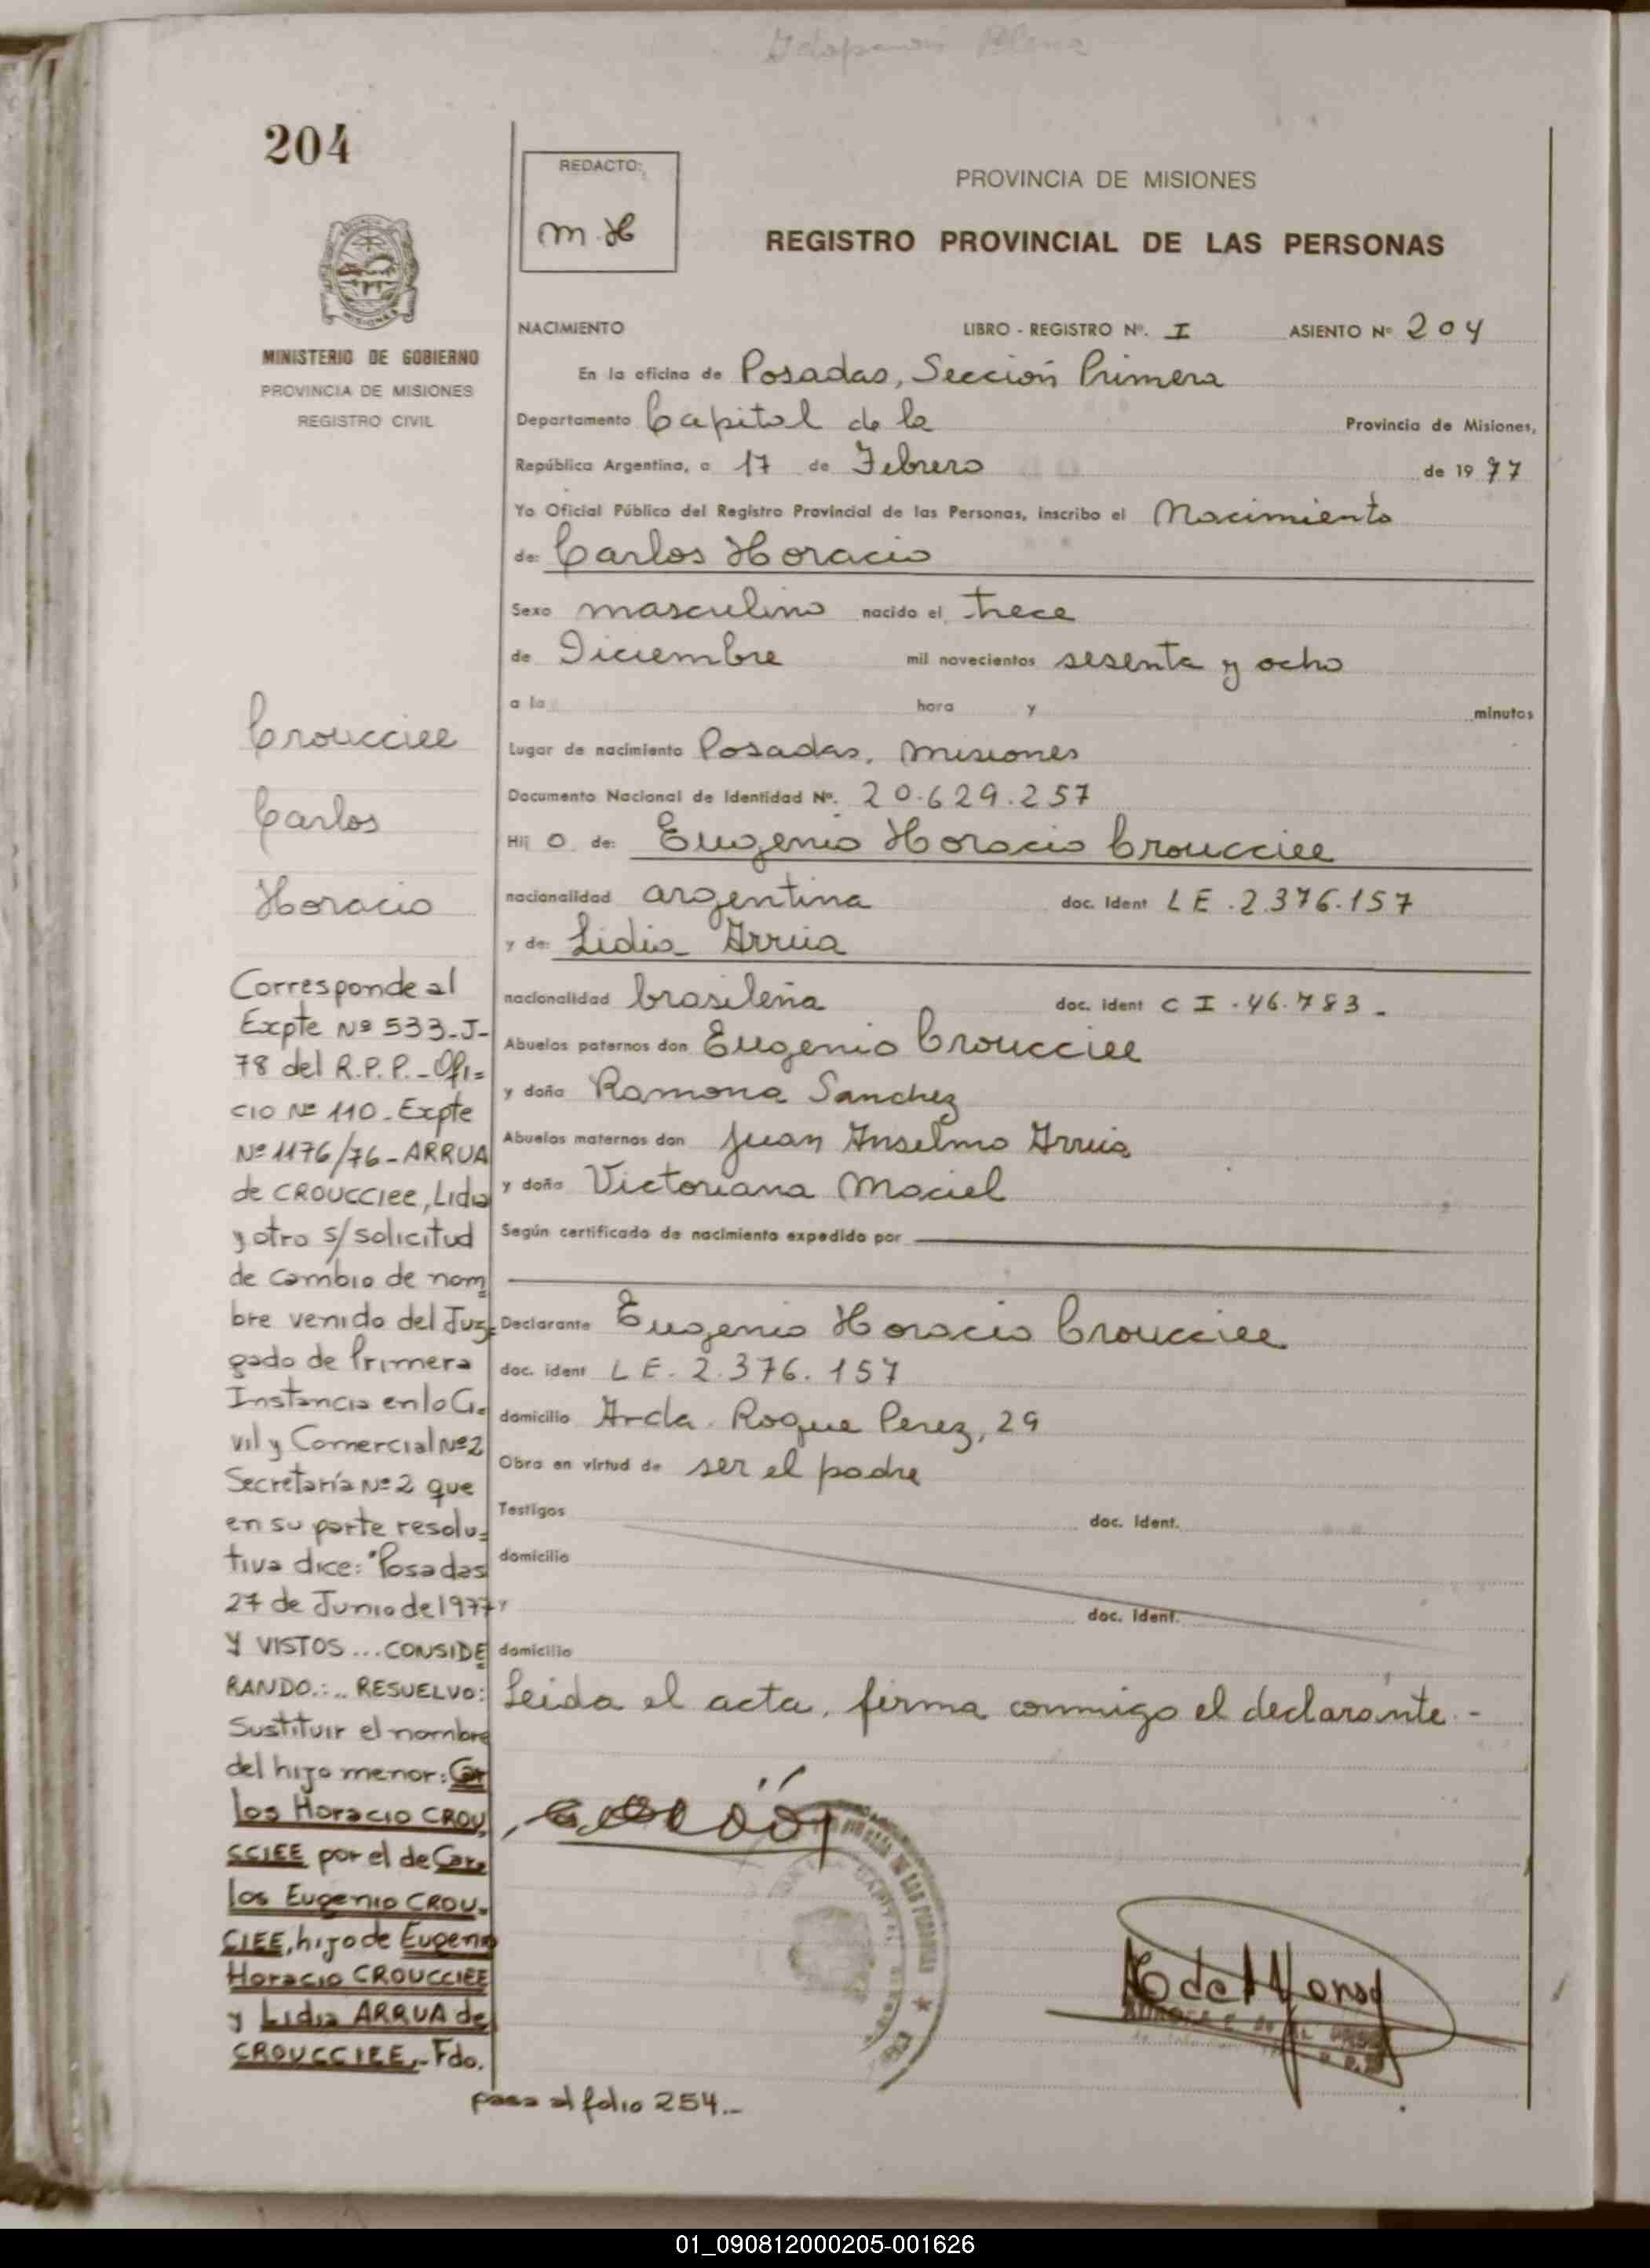 204
REDACTO:
m.H
PROVINCIA DE MISIONES
REGISTRO PROVINCIAL DE LAS PERSONAS
MINISTERIO DE GOBIERNO
PROVINCIA DE MISIONES
REGISTRO CIVIL
NACIMIENTO LIBRO - REGISTRO Nº. I ASIENTO Nº 204
En la oficina de Posadas, Sección Primera
Departamento Capital de la Provincia de Misiones,
República Argentina, a 17 de Febrero de 1977
Yo Oficial Público del Registro Provincial de las Personas, inscribo el Nacimiento
de: Carlos Horacio
Sexo masculino nacido el trece
de Diciembre mil novecientos sesenta y ocho
a la hora y minutos
Lugar de nacimiento Posadas, Misiones
Documento Nacional de Identidad Nº. 20.629.257
Hij o de: Eugenio Horacio Croucciee
nacionalidad argentina doc. ident LE.2.376.157
y de: Lidia Arrua
nacionalidad brasileña doc. ident C I.46.783.-
Abuelos paternos don Eugenio Croucciee
y doña Ramona Sanchez
Abuelos maternos don Juan Anselmo Arrua
y doña Victoriana Maciel
Según certificado de nacimiento expedido por
Declarante Eugenio Horacio Croucciee
doc. ident LE. 2.376.157
domicilio Avda. Roque Perez, 29
Obra en virtud de ser el padre
Testigos doc. ident.
domicilio
y doc. ident.
domicilio
Leida el acta, firma conmigo el declarante.-
Croucciee
Carlos
Horacio
Corresponde al
Expte Nº 533-J-
78 del R.P.P.-Ofi=
cio Nº 110-Expte
Nº 1176/76-ARRUA
de CROUCCIee, Lidia
y otro s/solicitud
de cambio de nom
bre venido del Juz-
gado de Primera
Instancia en lo Ci-
vil y Comercial Nº2
Secretaría Nº 2 que
en su parte resolu=
tiva dice: "Posadas
27 de Junio de 1977
Y VISTOS...CONSIDE
RANDO.:.. RESUELVO:
Sustituir el nombre
del hijo menor: Car
los Horacio CROU
CCIEE por el de Car=
los Eugenio CROU-
CIEE, hijo de Eugenio
Horacio CROUCCIEE
y Lidia ARRUA de
CROUCCIEE.-Fdo.
pasa al folio 254.-
01_090812000205-001626